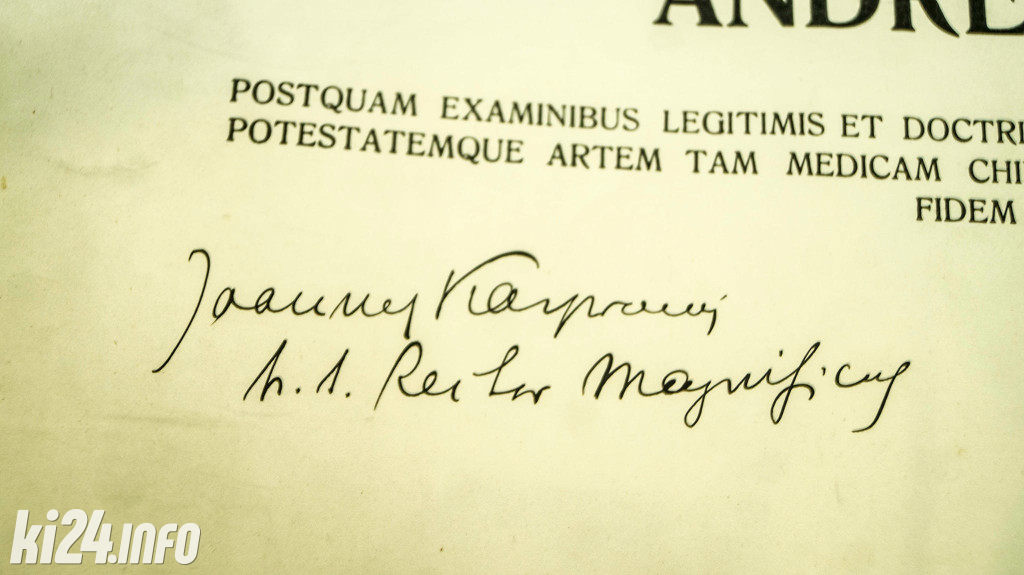 ANDRE
POSTQUAM EXAMINIBUS LEGITIMIS ET DOCTRI
POTESTATEMQUE ARTEM TAM MEDICAM CHI
FIDEM
Joannes Kasprowicz
h. t. Rector Magnificus
ki24.info